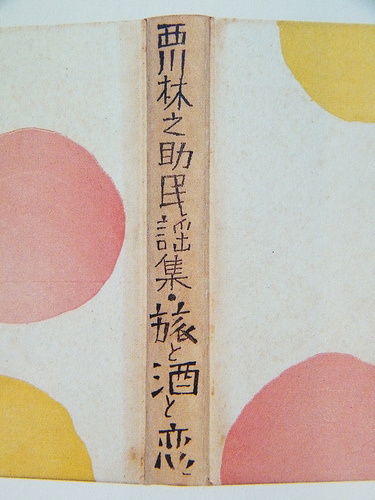 西川林之助民謡集・旅と酒と恋と